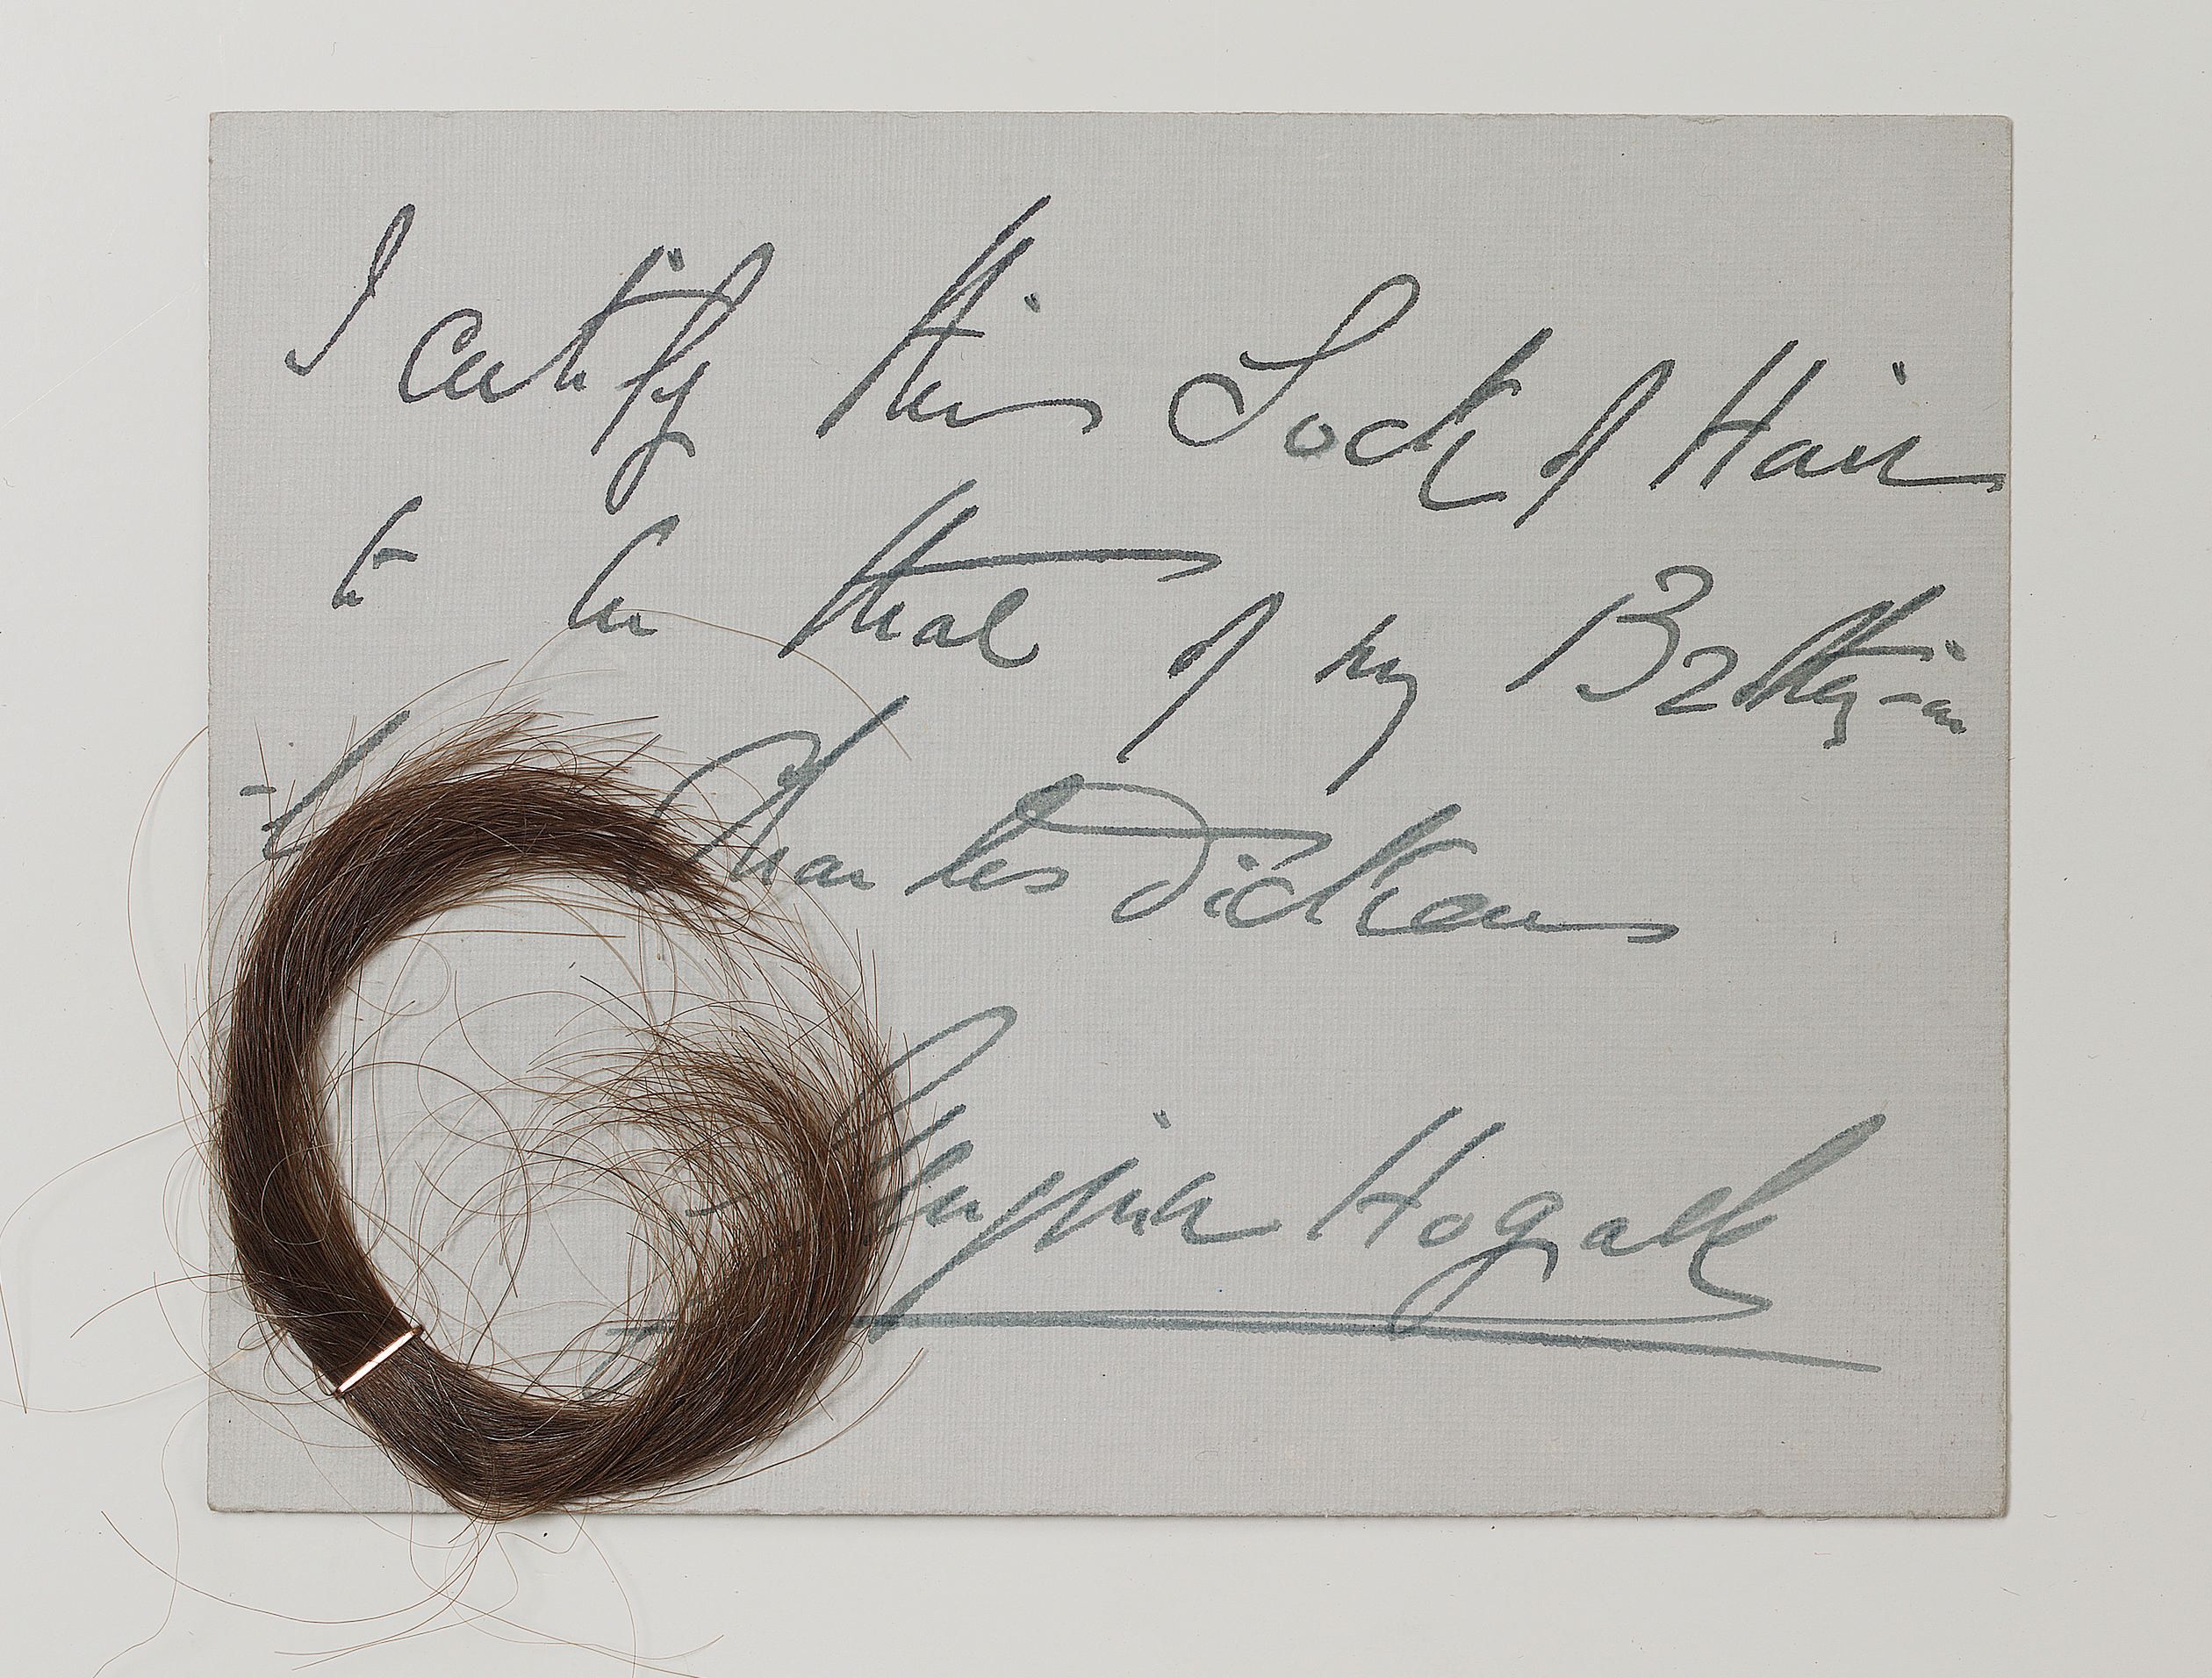 I certify this Lock of Hair
to be that of my Brother-in
-l Charles Dickens
Georgina Hogarth